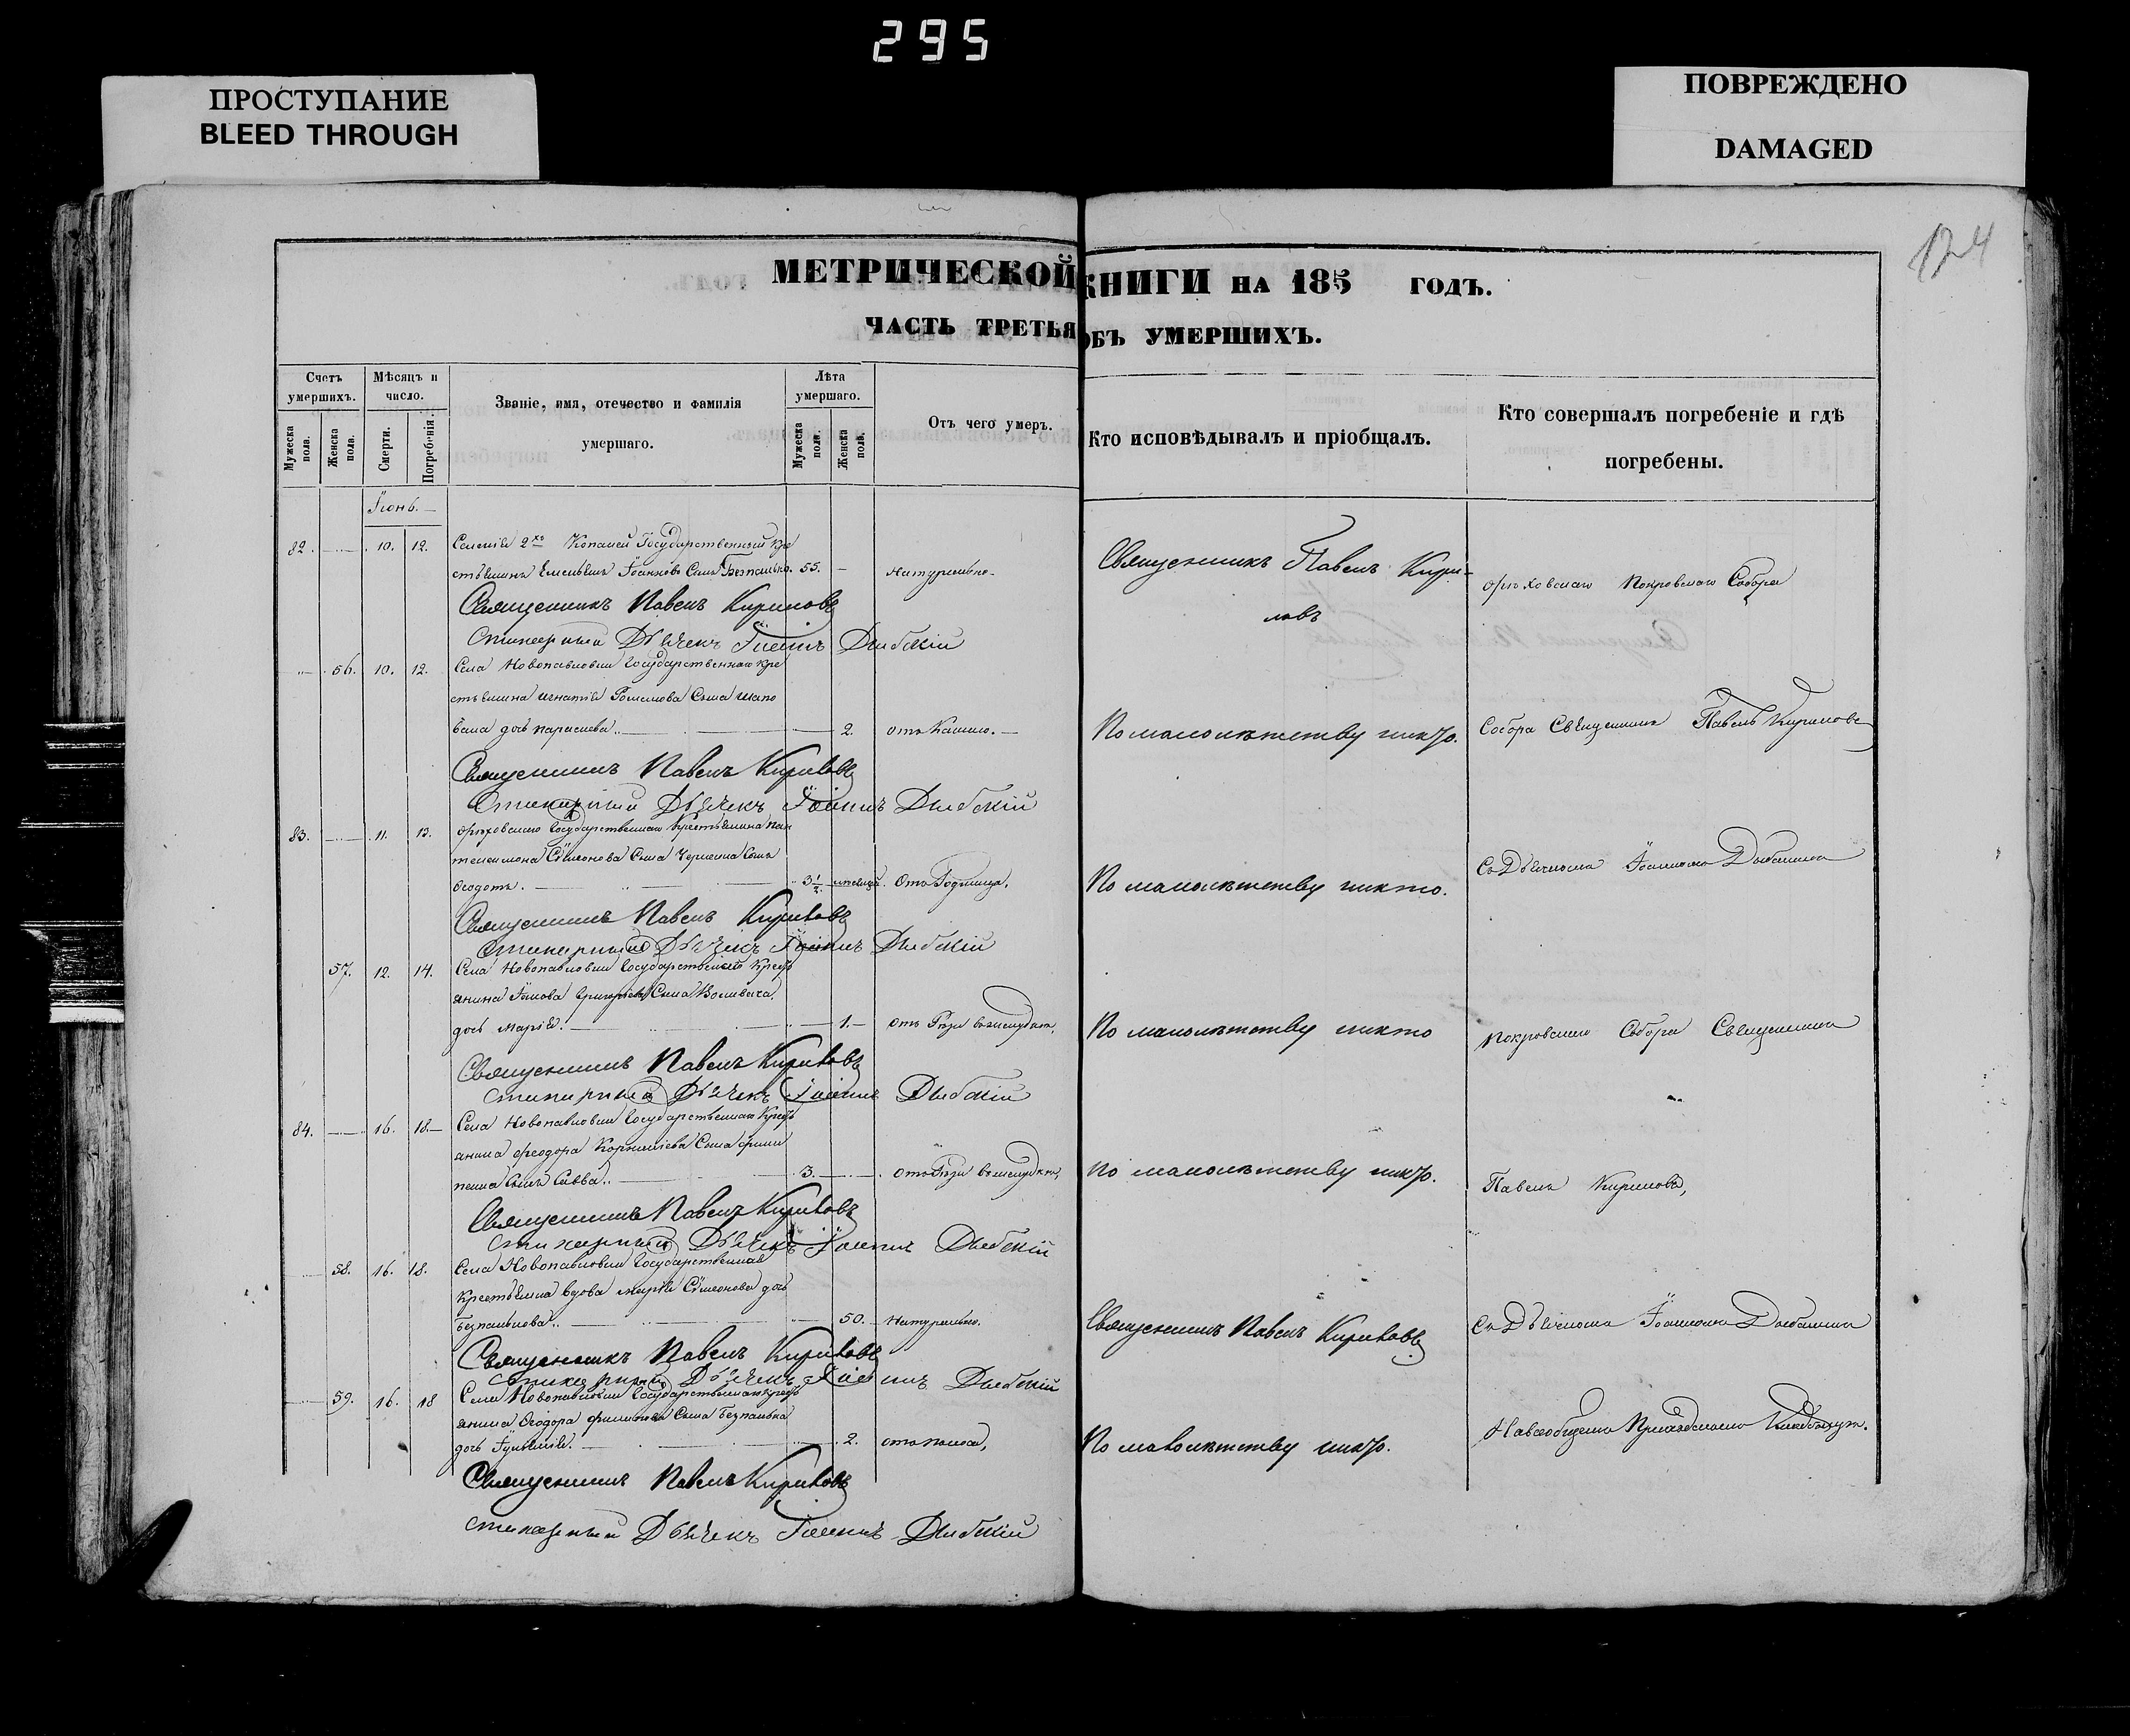 295
ПРОСТУПАНИЕ
BLEED THROUGH
ПОВРЕЖДЕНО
DAMAGED
124
МЕТРИЧЕСКОЙ КНИГИ НА 185 ГОДЪ.
ЧАСТЬ ТРЕТЬЯ ОБЪ УМЕРШИХЪ.
Счетъ умершихъ.
Мужеска пола.
Женска пола.
Мѣсяцъ и число.
Смерти.
Погребенія.
Званіе, имя, отечество и фамилія умершаго.
Лѣта умершаго.
Мужеска полъ.
Женска полъ.
Отъ чего умеръ.
Кто исповѣдывалъ и пріобщалъ.
Кто совершалъ погребеніе и гдѣ погребены.
Іюнь.
82. 10. 12. 2хъ Копаней Государственный кре
стьянинъ Іоанновъ Сынъ 55. Натурально
Священникъ Павелъ Кири-
ловъ
Орѣховскаго Покровскаго Собора
Священникъ Павелъ Кириловъ
Стихарный Дьячекъ Іоаннъ
56. 10. 12. Села Новопавловки Государственнаго кре
стьянина Игнатія Сына Шапо
вала дочь 2. отъ Кашлю.
По малолѣтству никто.
Собора Священникъ Павелъ Кириловъ
Священникъ Павелъ Кириловъ
Стихарный Дьячекъ Іоаннъ
83. 11. 13. Орѣховскаго Государственнаго Крестьянина Пан
телеимона Сѵмеонова Сына Сынъ
Ѳеодотъ. 3½ Отъ Родимца.
По малолѣтству никто.
Съ Дьячкомъ Іоанномъ
Священникъ Павелъ Кириловъ
Стихарный Дьячекъ Іоаннъ
57. 12. 14. Села Новопавловки Государственнаго Крест
янина Григорьева Сына
дочь Марія. 1.
По малолѣтству никто
Покровскаго Собора Священникъ
Священникъ Павелъ Кириловъ
Стихарный Дьячекъ Іоаннъ
84. 16. 18. Села Новопавловки Государственнаго Крест
янина Феодора Корниліева Сына
Сынъ Савва. 3.
По малолѣтству никто.
Павелъ Кириловъ,
Священникъ Павелъ Кириловъ
Стихарный Дьячекъ Іоаннъ
58. 16. 18. Села Новопавловки Государственная
Крестьянка вдова Марія Сѵмеонова дочь
50. Натурально.
Священникъ Павелъ Кириловъ
Съ Дьячкомъ Іоанномъ
Священникъ Павелъ Кириловъ
Стихарный Дьячекъ Іоаннъ
59. 16. 18 Села Новопавловки Государственнаго Крест
янина Ѳеодора Сына
дочь 2. отъ поноса,
По малолѣтству никто.
На всеобщемъ Приходскомъ Кладбищѣ.
Священникъ Павелъ Кириловъ
Стихарный Дьячекъ Іоаннъ